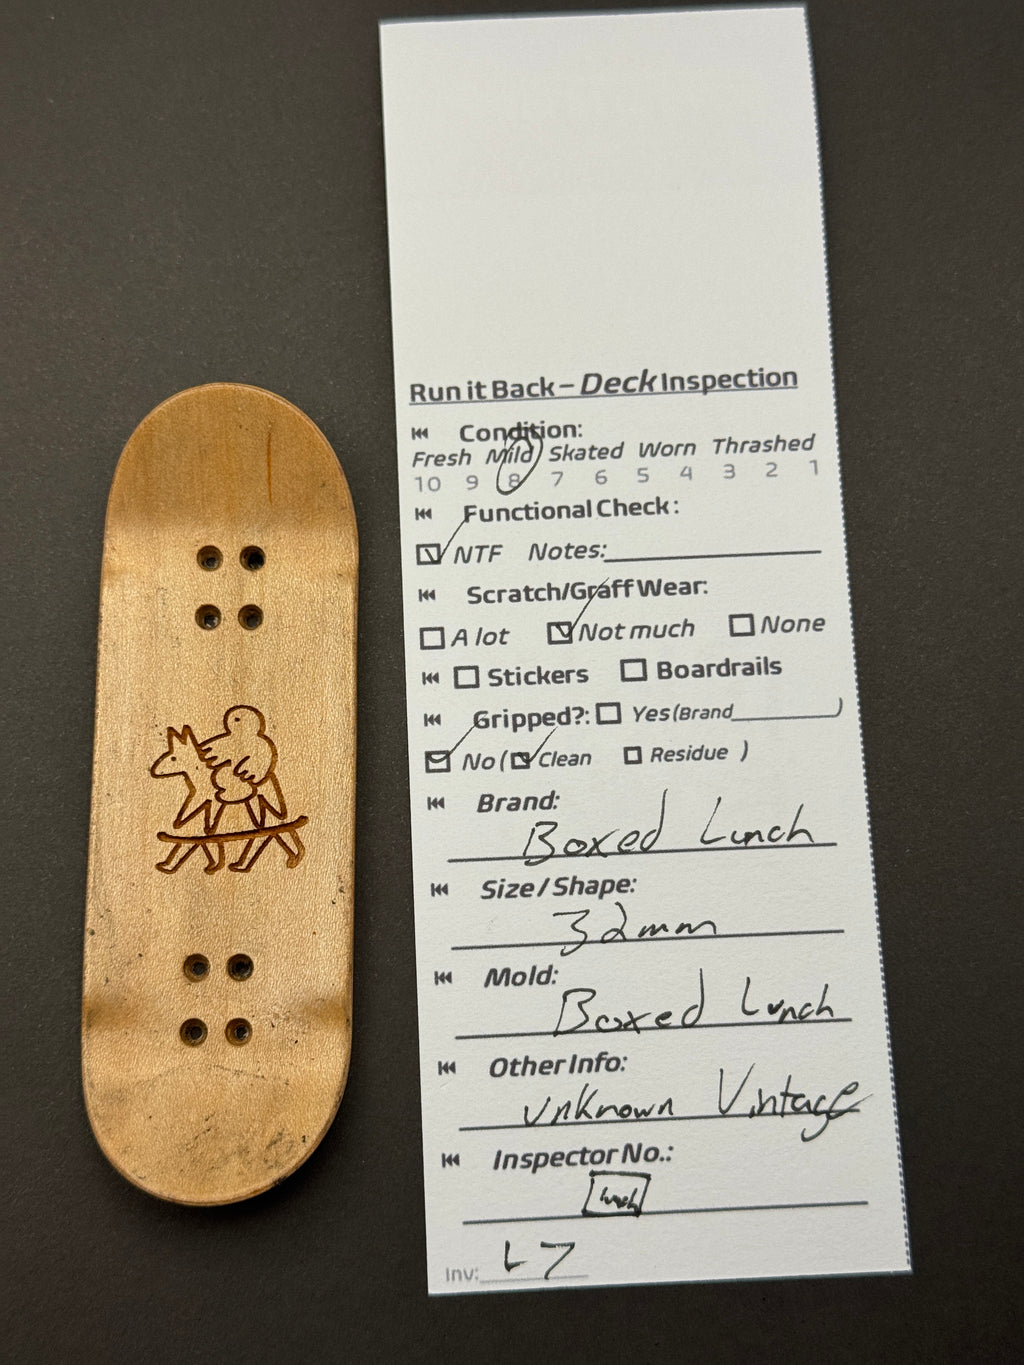 Run it Back – Deck Inspection
Condition:
Fresh Mild Skated Worn Thrashed
10 9 8 7 6 5 4 3 2 1
Functional Check:
NTF Notes:
Scratch/Graff Wear:
A lot Not much None
Stickers Boardrails
Gripped?: Yes (Brand )
No ( Clean Residue )
Brand:
Boxed Lunch
Size / Shape:
32mm
Mold:
Boxed Lunch
Other Info:
Unknown Vintage
Inspector No.:
Lunch
Inv: L7